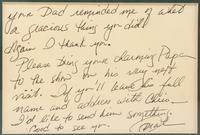 your Dad reminded me of what
a gracious thing you did.
Again I thank you.
Please bring your charming Papa
to the show on his very next
visit. If you'll leave his full
name and address with Chris
I'd like to send him something.
Good to see you.